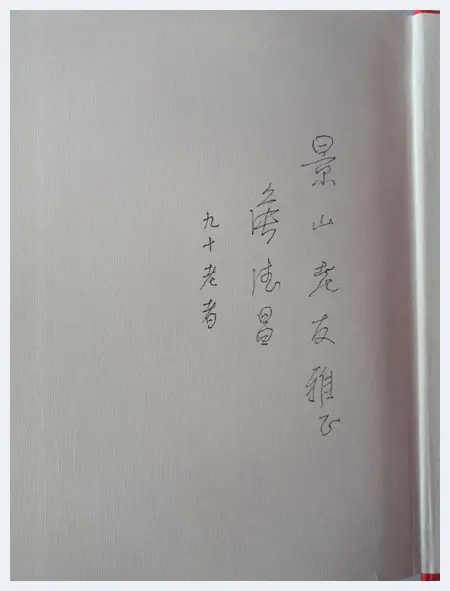 景山老友雅正
昌
九十老者